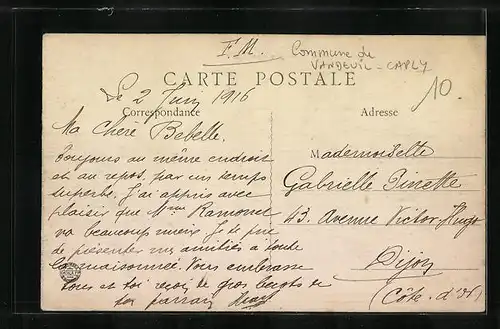 F.M.
Commune de
VANDEUIL - CAPLY
10
CARTE POSTALE
Le 2 Juin 1916
Correspondance
Adresse
Ma Chère Babelle.
Toujours au même endroit
et au repos, par un temps
superbe. J'ai appris avec
plaisir que Mme Ramonet
va beaucoup mieux. Je te prie
de présenter mes amitiés à toute
la maisonnée. Vous embrasse
tous et toi reçois de gros becots de
ton parrain
Mademoiselle
Gabrielle Pinette
43, Avenue Victor-Hugo
Dijon
(Côte-d'Or)